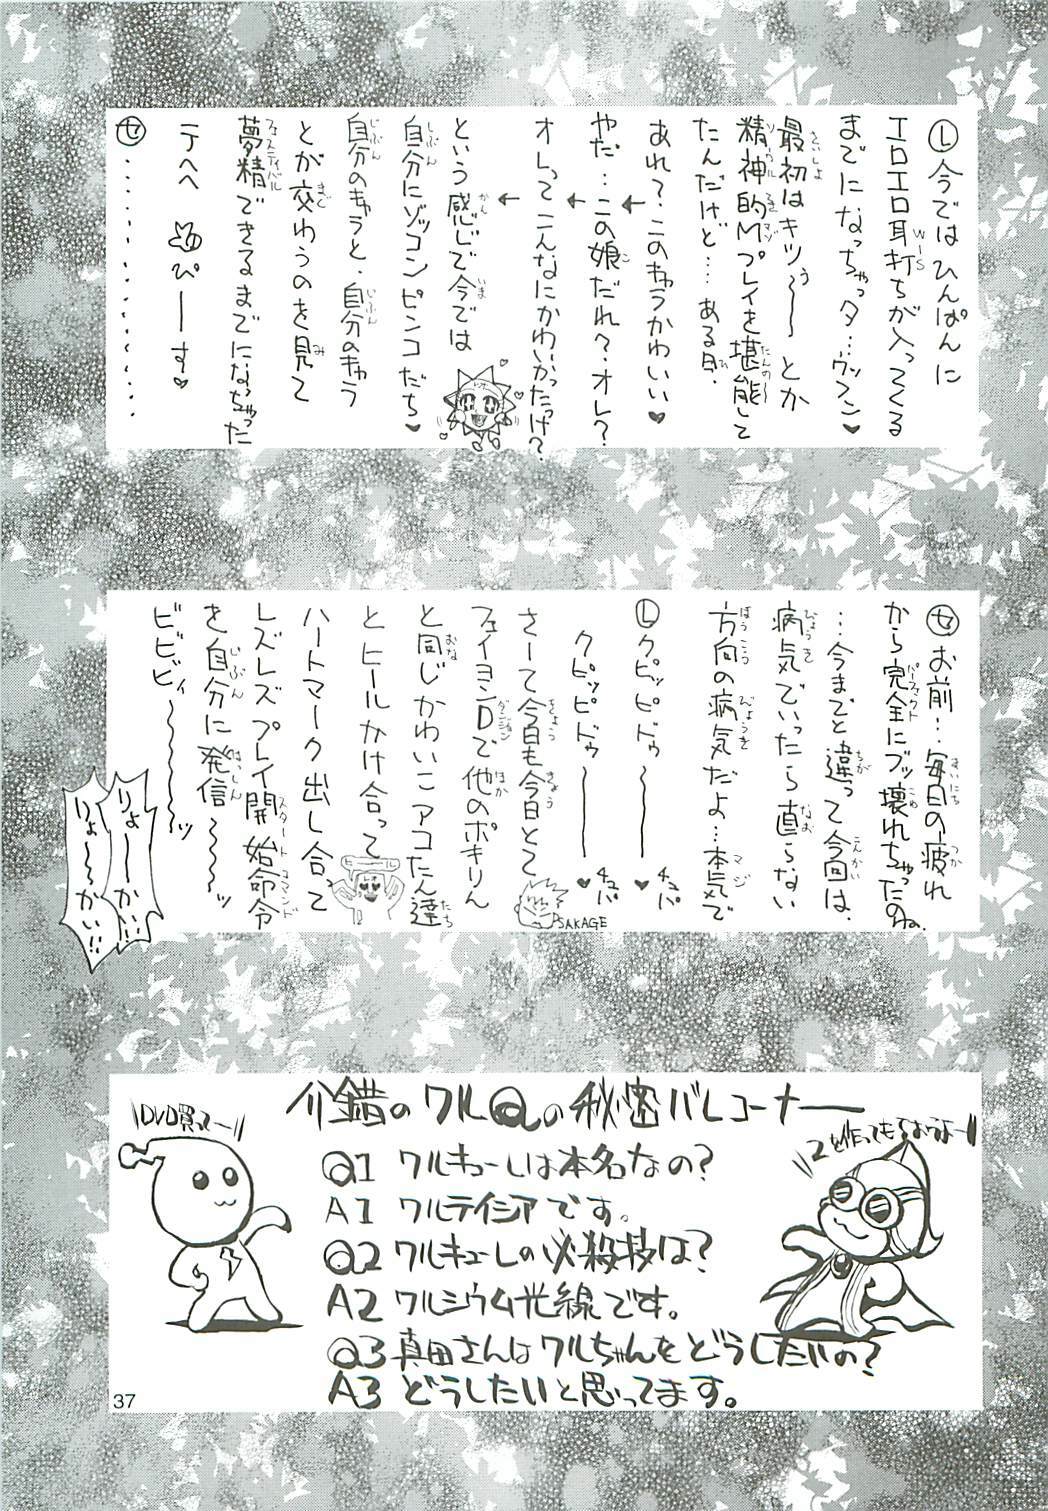 Ⓛ今ではひんぱんに
エロエロ耳打ちが入ってくる
までになっちゃっタ…ウッフン♥
最初はキツぅ〜〜とか
精神的Mプレイを堪能して
たんだけど…ある日、
あれ?このキャラかわいい♥
やだ…この娘だれ?オレ?
オレってこんなにかわいかったっけ?
という感じで今では
自分にゾッコンピンコだち♥
自分のキャラと、自分のキャラ
とが交わうのを見て
夢精できるまでになっちゃった
テヘヘ ぴーす♥
㋝・・・・・・・・・・・・・・
㋝お前…毎日の疲れ
から完全にブッ壊れちゃったのね。
…今までと違って今回は、
病気でいったら直らない
方向の病気だよ…本気で
Ⓛクピッピドゥ〜〜〜♥チュパ
クピッピドゥ〜〜〜♥チュパ
さーて今日も今日とて
フェイヨンDで他のポキりん
と同じかわいこアコたん達
とヒールかけ合って
ハートマーク出し合って
レズレズプレイ開始命令
を自分に発信〜〜〜ッ
ビビビィ〜〜〜〜〜ッ
PSAKAGE
ヒール
りょーーかい!!
りょ〜〜かい!!
介錯のワルQの秘密バレコーナー
\\DVD買ってー//
Q1 ワルキューレは本名なの?
A1 ワルテイシアです。
Q2 ワルキューレの必殺技は?
A2 ワルシウム光線です。
Q3 真田さんはワルちゃんをどうしたいの?
A3 どうしたいと思ってます。
37